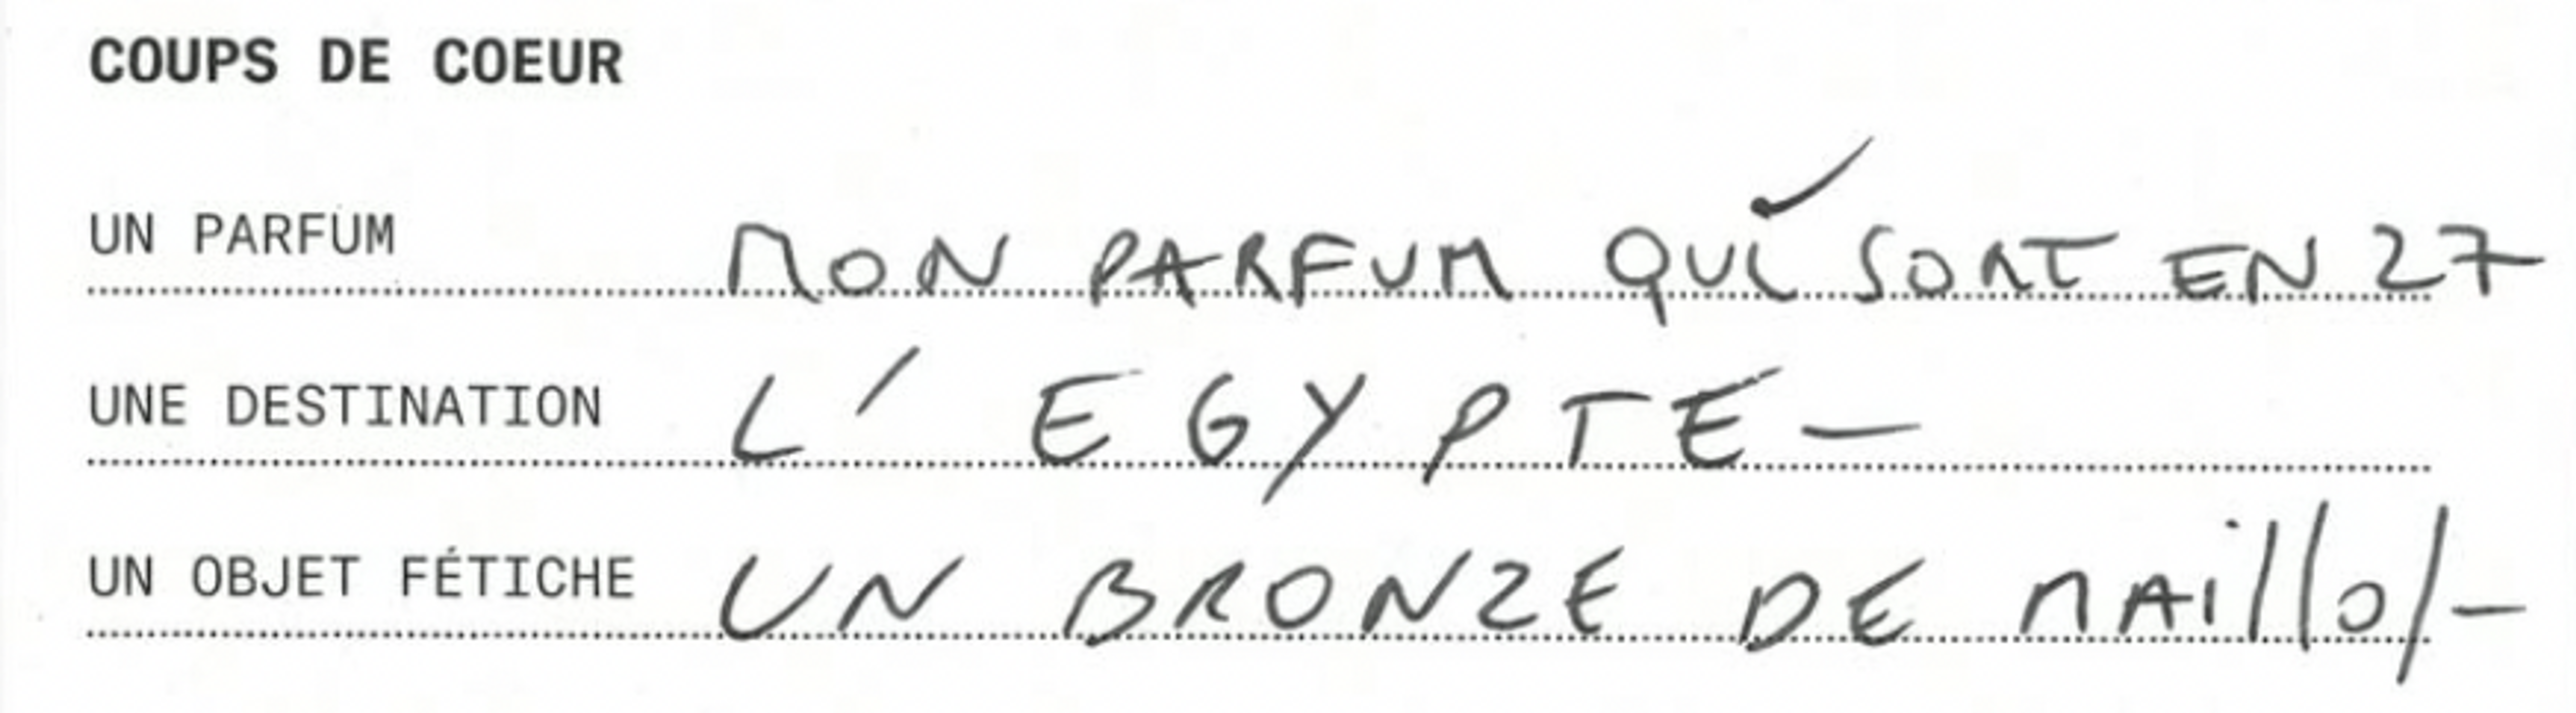 COUPS DE COEUR
UN PARFUM MON PARFUM QUI SORT EN 27
UNE DESTINATION L'EGYPTE—
UN OBJET FÉTICHE UN BRONZE DE MAillol—